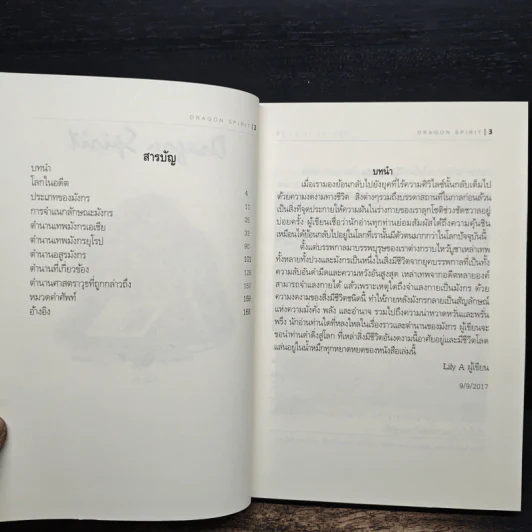 สารบัญ
บทนำ
โลกในอดีต
ประเภทของมังกร 4
การจำแนกลักษณะมังกร 11
ตำนานเทพมังกรเอเชีย 26
ตำนานเทพมังกรยุโรป 32
ตำนานอสูรมังกร 80
ตำนานที่เกี่ยวข้อง 101
ตำนานศาสตราวุธที่ถูกกล่าวถึง
หมวดคำศัพท์
อ้างอิง
3
บทนำ
เมื่อเรามองย้อนกลับไปยังยุคที่ไร้ความศิวิไลซ์นั้นกลับเต็มไป
ด้วยความงดงามทางชีวิต สิ่งต่างๆรวมถึงบรรดาสถานที่ในกาลก่อนล้วน
เป็นสิ่งที่จุดประกายให้ความฝันในร่างกายของเราลุกโชติช่วงชัชวาลอยู่
บ่อยครั้ง ผู้เขียนเชื่อว่านักอ่านทุกท่านย่อมสัมผัสได้ถึงความคุ้นชิน
เหมือนได้ย้อนกลับไปอยู่ในโลกที่เรานั้นมีตัวตนมากกว่าในโลกปัจจุบันนี้
ตั้งแต่บรรพกาลมาบรรพบุรุษของเราต่างกราบไหว้บูชาเหล่าเทพ
ทั้งหลายทั้งปวงและมังกรเป็นหนึ่งในสิ่งมีชีวิตจากยุคบรรพกาลที่เป็นทั้ง
ความลับอันดำมืดและความหวังอันสูงสุด เหล่าเทพจากอดีตหลายองค์
สามารถจำแลงกายได้ แล้วเพราะเหตุใดถึงจำแลงกายเป็นมังกร ด้วย
ความงดงามของสิ่งมีชีวิตชนิดนี้ ทำให้ภายหลังมังกรกลายเป็นสัญลักษณ์
แห่งความมั่งคั่ง พลัง และอำนาจ รวมไปถึงความน่าหวาดหวั่นและพรั่น
พรึง นักอ่านท่านใดที่หลงใหลในเรื่องราวและตำนานของมังกร ผู้เขียนจะ
ขอนำท่านดำดิ่งสู่โลก ที่เหล่าสิ่งมีชีวิตอันงดงามนี้อาศัยอยู่และมีชีวิตโลด
แล่นอยู่ในน้ำหมึกทุกหยาดหยดของหนังสือเล่มนี้
Lily A ผู้เขียน
9/9/2017